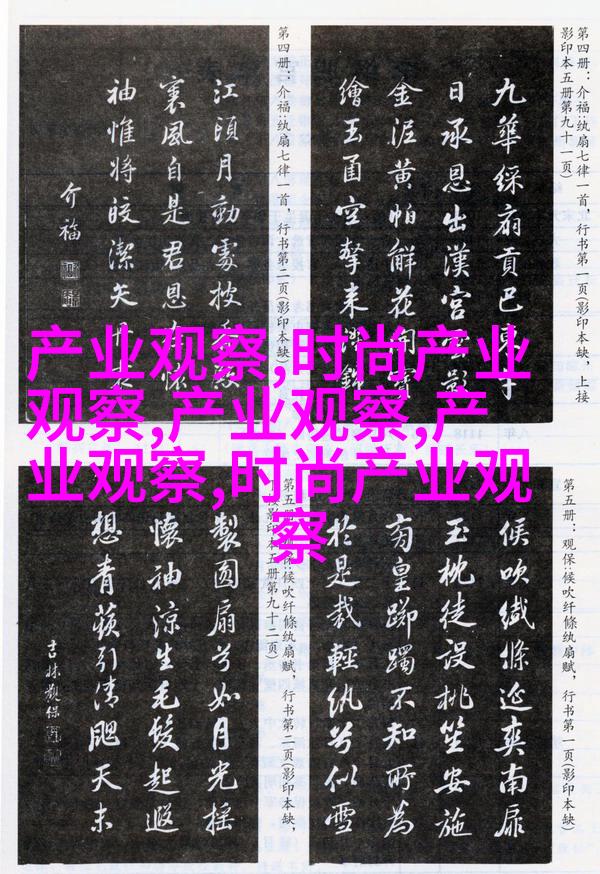 第四册：介福:纨扇七律一首，行书第一页(影印本缺)，上接
影印本五册第九十一页)
九華綵扇貢巴
日承恩出漢宮影
金泥黄帕鮮花開寶
繪玉函空擎来
第四册：介福:纨扇七律一首，行书第二页(影印本缺)
江頭月動處披香殿
裏風自是君恩懷
袖惟将皎潔矢丹
介福
产业观察,时尚产业
观察,产业观察,产
业观察,时尚产业观
察
第五册：观保:候吹纤絛纨扇赋，行书第一页(影印本缺)
候吹纎絛延爽南扉
玉枕徒設桃笙安施
有皇躑躅不知所為
於是裁輕紈兮似雪
保:候吹纤絛纨扇赋，行书第二页(影印本缺，
影印本五册第九十二页)
製圓扇兮如月光摇
懷袖涼生毛髮起遐
想青蘋引清颸天末
吉林觀保